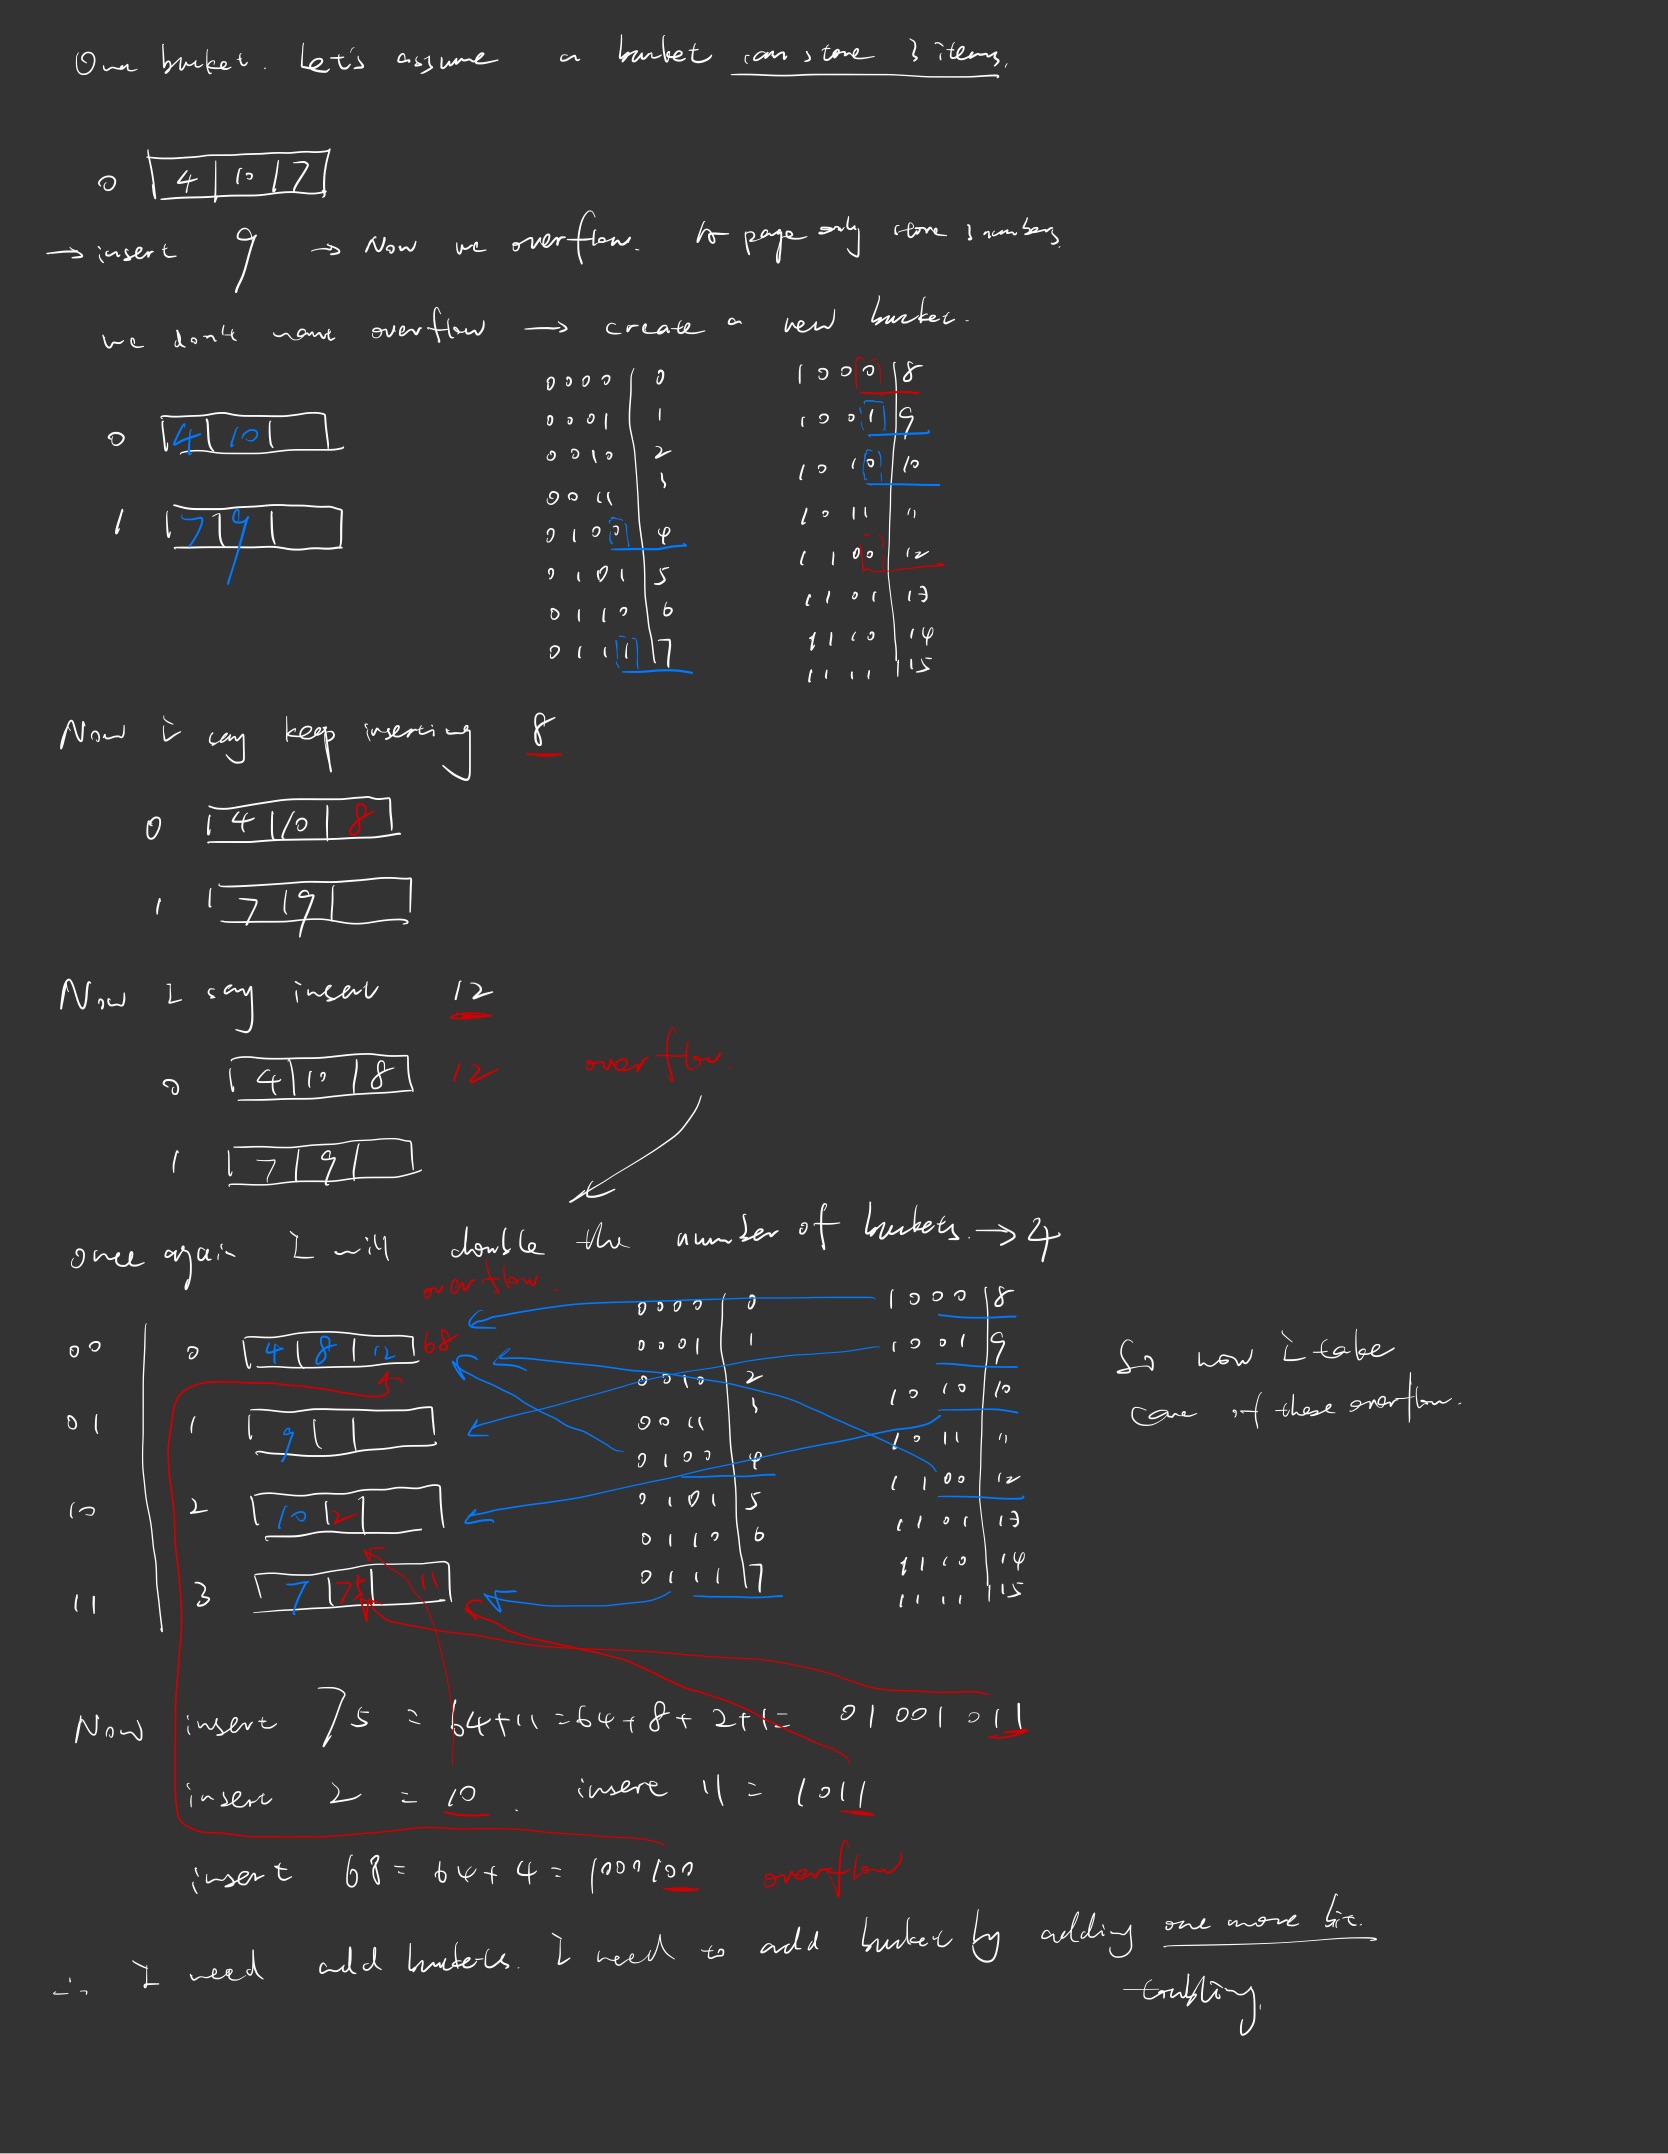 One bucket. Let's assume a bucket can store 3 items.
0 4 10 7
→ insert 9 → Now we overflow. A page only store 3 numbers.
we don't want overflow → create a new bucket.
0 4 10
1 7 9
0000 0
0001 1
0010 2
0011 3
0100 4
0101 5
0110 6
0111 7
1000 8
1001 9
1010 10
1011 11
1100 12
1101 13
1110 14
1111 15
Now I say keep inserting 8
0 4 10 8
1 7 9
Now I say insert 12
0 4 10 8 12 overflow.
1 7 9
Once again I will double the number of buckets. → 4
overflow.
00 0 4 8 12 68
01 1 9
10 2 10 2
11 3 7 75 11
0000 0
0001 1
0010 2
0011 3
0100 4
0101 5
0110 6
0111 7
1000 8
1001 9
1010 10
1011 11
1100 12
1101 13
1110 14
1111 15
So now I take
care of these overflow.
Now insert 75 = 64+11 = 64+8+2+1 = 01001011
insert 2 = 10. insert 11 = 1011
insert 68 = 64+4 = 1000100 overflow
∴ I need add buckets. I need to add bucket by adding one more bit.